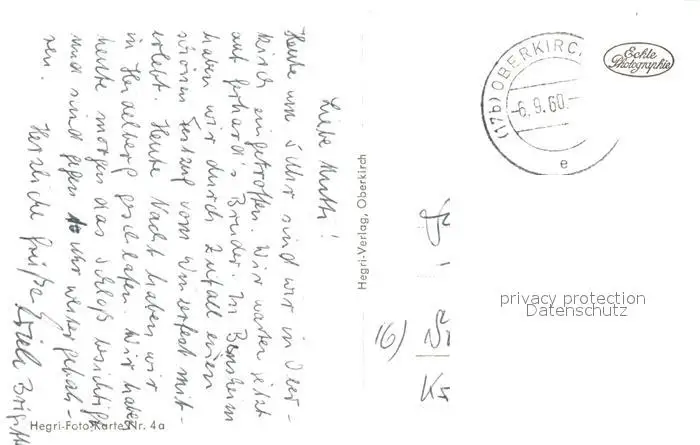 Liebe Mutti!
Heute um 5 Uhr sind wir in Ober-
kirch eingetroffen. Wir warten jetzt
auf Gerhard's Bruder. In Bensheim
haben wir durch Zufall einen
schönen Festzug vom Winzerfest mit-
erlebt. Heute Nacht haben wir
in Heidelberg geschlafen. Wir haben
heute morgen das Schloß besichtigt
und sind gegen 10 Uhr weiter gefah-
ren.
Herzliche Grüße
Brigitte
Hegri-Foto-Karte Nr. 4a
Hegri-Verlag, Oberkirch
(17b) OBERKIRCH
-6.9.60.-
e
Echte
Photographie
16)
privacy protection
Datenschutz